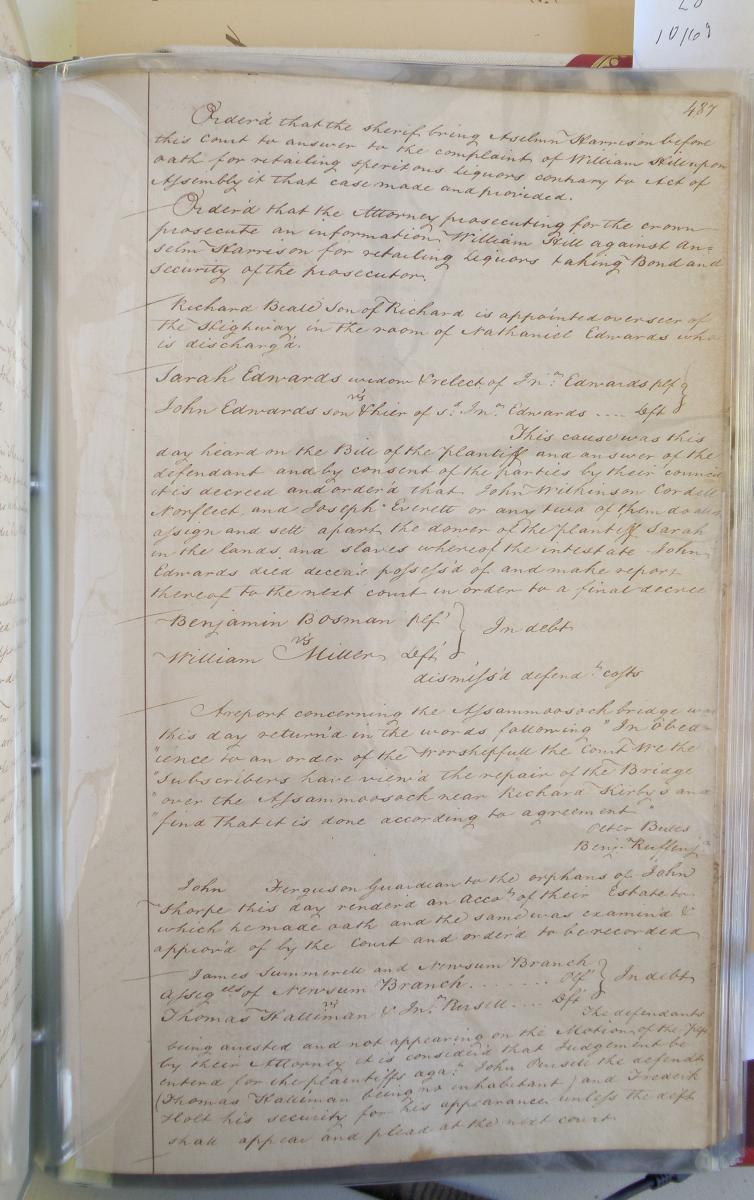 10/69
487
Order'd that the sherif bring Aselmn Harrison before
this Court to answer to the complaint of William Hill upon
oath for retailing speritous Liquors contrary to Act of
Assembly it that case made and provided.
Order'd that the Attorney prosecuting for the crown
prosecute an information William Hill against An=
selm Harrison for retailing Liquors taking Bond and
security of the prosecutor.
Richard Beale Son of Richard is appointed overseer of
the Highway in the room of Nathaniel Edwards who
is discharg'd.
Sarah Edwards widow & relect of Jnº. Edwards plf
vs
John Edwards son & hier of sd. Jnº. Edwards .... Deft
This cause was this
day heard on the Bill of the plantiff and answer of the
defendant and by consent of the parties by their council
it is decreed and order'd that John Wilkinson Cordell
Norflect, and Joseph Everett or any two of them do
assign and sett apart the dower of the plantiff Sarah
in the lands and slaves whereof the intestate John
Edwards died possess'd of and make report
thereof to the next court in order to a final decree
Benjamin Bosman plf } In debt
vs
William Miller Deft
dismiss'd defendts costs
A report concerning the Assammoosock bridge was
this day return'd in the words following "In obed
"ience to an order of the Worshepfull the Court We the
"Subscribers have view'd the repair of the Bridge
"over the Assammoosock near Richard Kirby's and
"find that it is done according to agreement"
Peter Butes
Benjn.
John Ferguson Guardian to the orphans of John
Thorpe this day render'd an Accot. of their Estate to
which he made oath and the same was examin'd &
approv'd of by the Court and order'd to be recorded
James Summerell and Newsum Branch
Assignees of Newsum Branch ........ Plfs } In debt
vs
Thomas Halliman & Jnº. Pursell .... Deft
The defendants
being arrested and not appearing on the Motion of the Plfs
by their Attorney it is consider'd that Judgement be
enterd for the plaintiffs agat. John Pursell the defendt
(Thomas Halliman being no inhabitant) and Frederik
Holt his security for his appearance unless the deft
shall appear and plead at the next court.